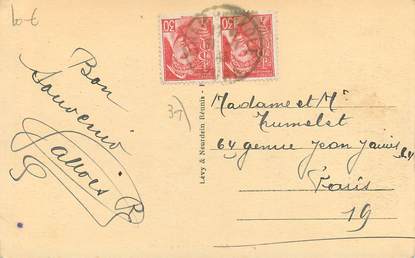 10 €
Bon
Souvenir
50
50
37
Lévy & Neurdein Réunis -
Madame et Mr
Humelet
64 Jean Jaurès
Paris
19